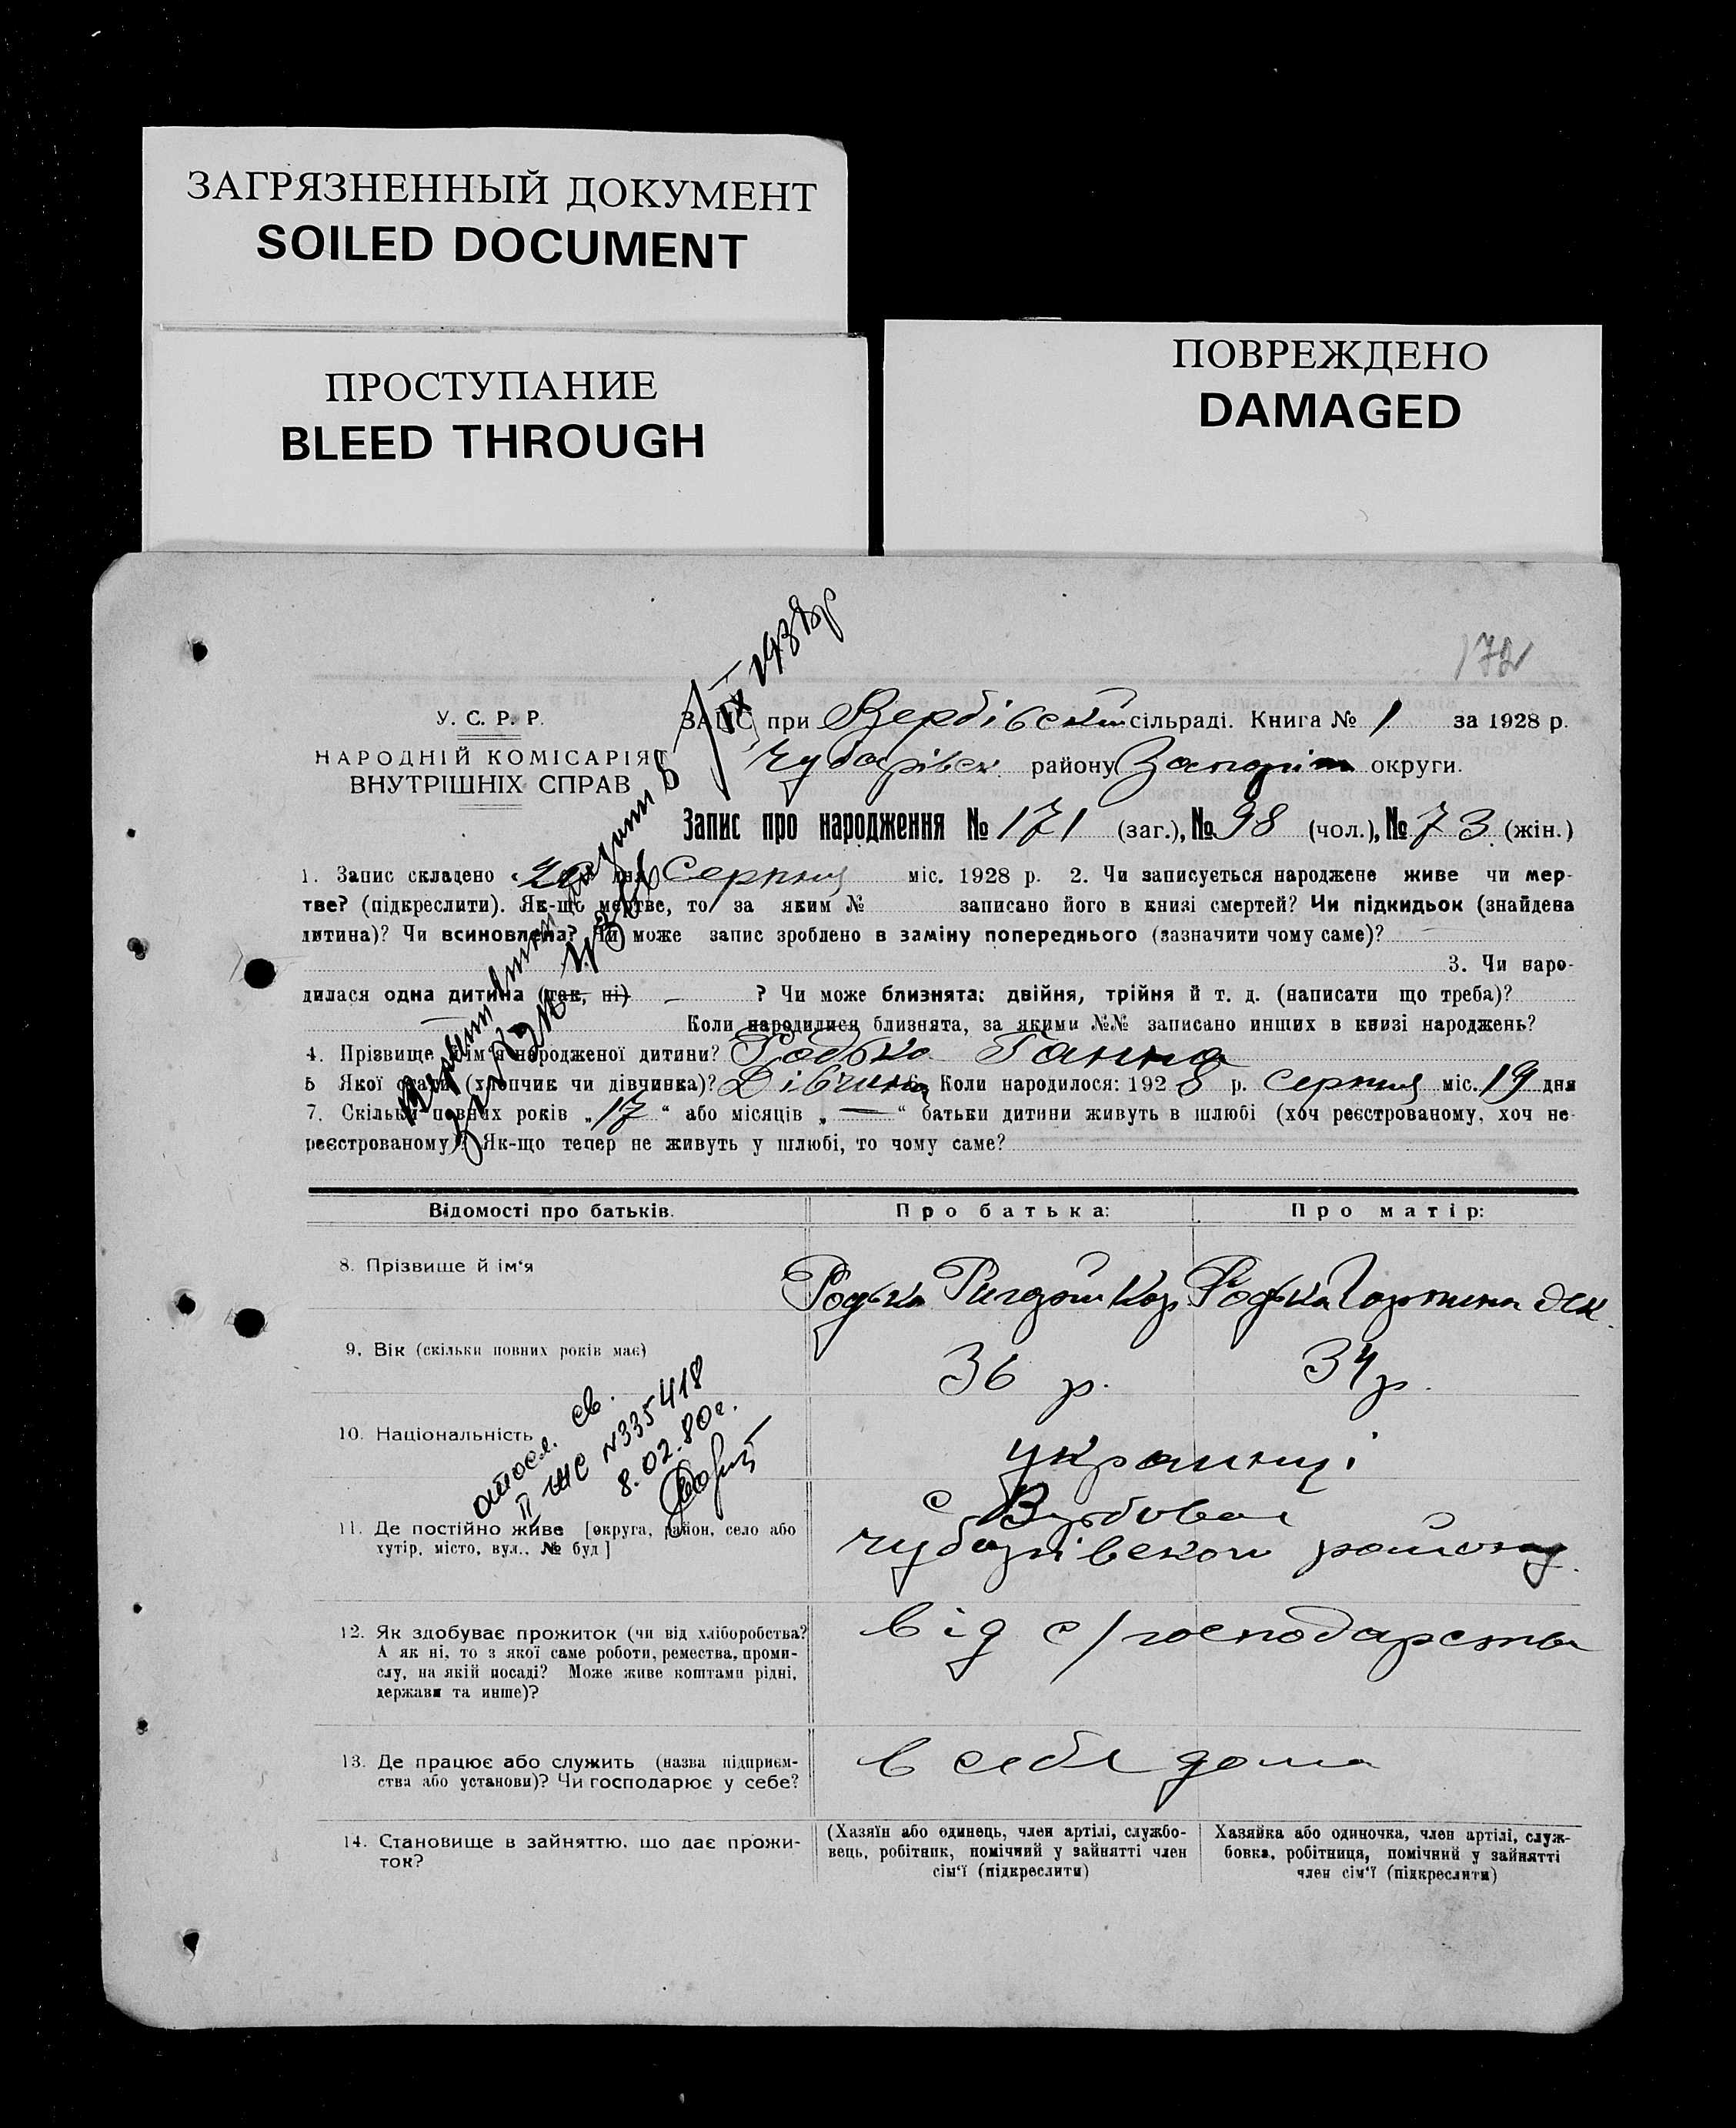 ЗАГРЯЗНЕННЫЙ ДОКУМЕНТ
SOILED DOCUMENT
ПРОСТУПАНИЕ
BLEED THROUGH
ПОВРЕЖДЕНО
DAMAGED
172
IX 1938р
У. С. Р. Р.
НАРОДНІЙ КОМІСАРІЯТ
ВНУТРІШНІХ СПРАВ
ЗАПИС при Вербівській сільраді. Книга № 1 за 1928 р.
Чубарівск. району Запоріж округи.
Запис про народження № 171 (заг.), № 98 (чол.), № 73 (жін.)
1. Запис складено „20“ дня Серпня міс. 1928 р. 2. Чи записується народжене живе чи мер-
тве? (підкреслити). Як-що мертве, то за яким № записано його в книзі смертей? Чи підкидьок (знайдена
дитина)? Чи всиновлена? Чи може запис зроблено в заміну попереднього (зазначити чому саме)?
3. Чи наро-
дилася одна дитина (так, ні) — ? Чи може близнята: двійня, трійня й т. д. (написати що треба)?
Коли народилися близнята, за якими №№ записано инших в книзі народжень?
4. Прізвище й ім'я народженої дитини? Родько Ганна
5 Якої статі (хлопчик чи дівчинка)? Дівчина 6. Коли народилося: 1928 р. серпня міс. 19 дня
7. Скільки повних років „17“ або місяців „—“ батьки дитини живуть в шлюбі (хоч реєстрованому, хоч не-
реєстрованому)? Як-що тепер не живуть у шлюбі, то чому саме?
Відомості про батьків. Про батька: Про матір:
8. Прізвище й ім'я Родько Кор Родька
9. Вік (скільки повних років має) 36 р. 34 р.
10. Національність українці
св.
II ЖС №335418
8.02.80г.
11. Де постійно живе [округа, район, село або
хутір, місто, вул., № буд]
с Вербовое
Чубарівского району.
12. Як здобуває прожиток (чи від хліборобства?
А як ні, то з якої саме роботи, ремества, проми-
слу, на якій посаді? Може живе коштами рідні,
держави та инше)?
від с/господарства
13. Де працює або служить (назва підприєм-
ства або установи)? Чи господарює у себе?
в себе дома
14. Становище в зайняттю, що дає прожи-
ток?
(Хазяїн або одинець, член артілі, службо-
вець, робітник, помічний у зайнятті член
сім'ї (підкреслити)
Хазяйка або одиночка, член артілі, служ-
бовка, робітниця, помічний у зайнятті
член сім'ї (підкреслити)